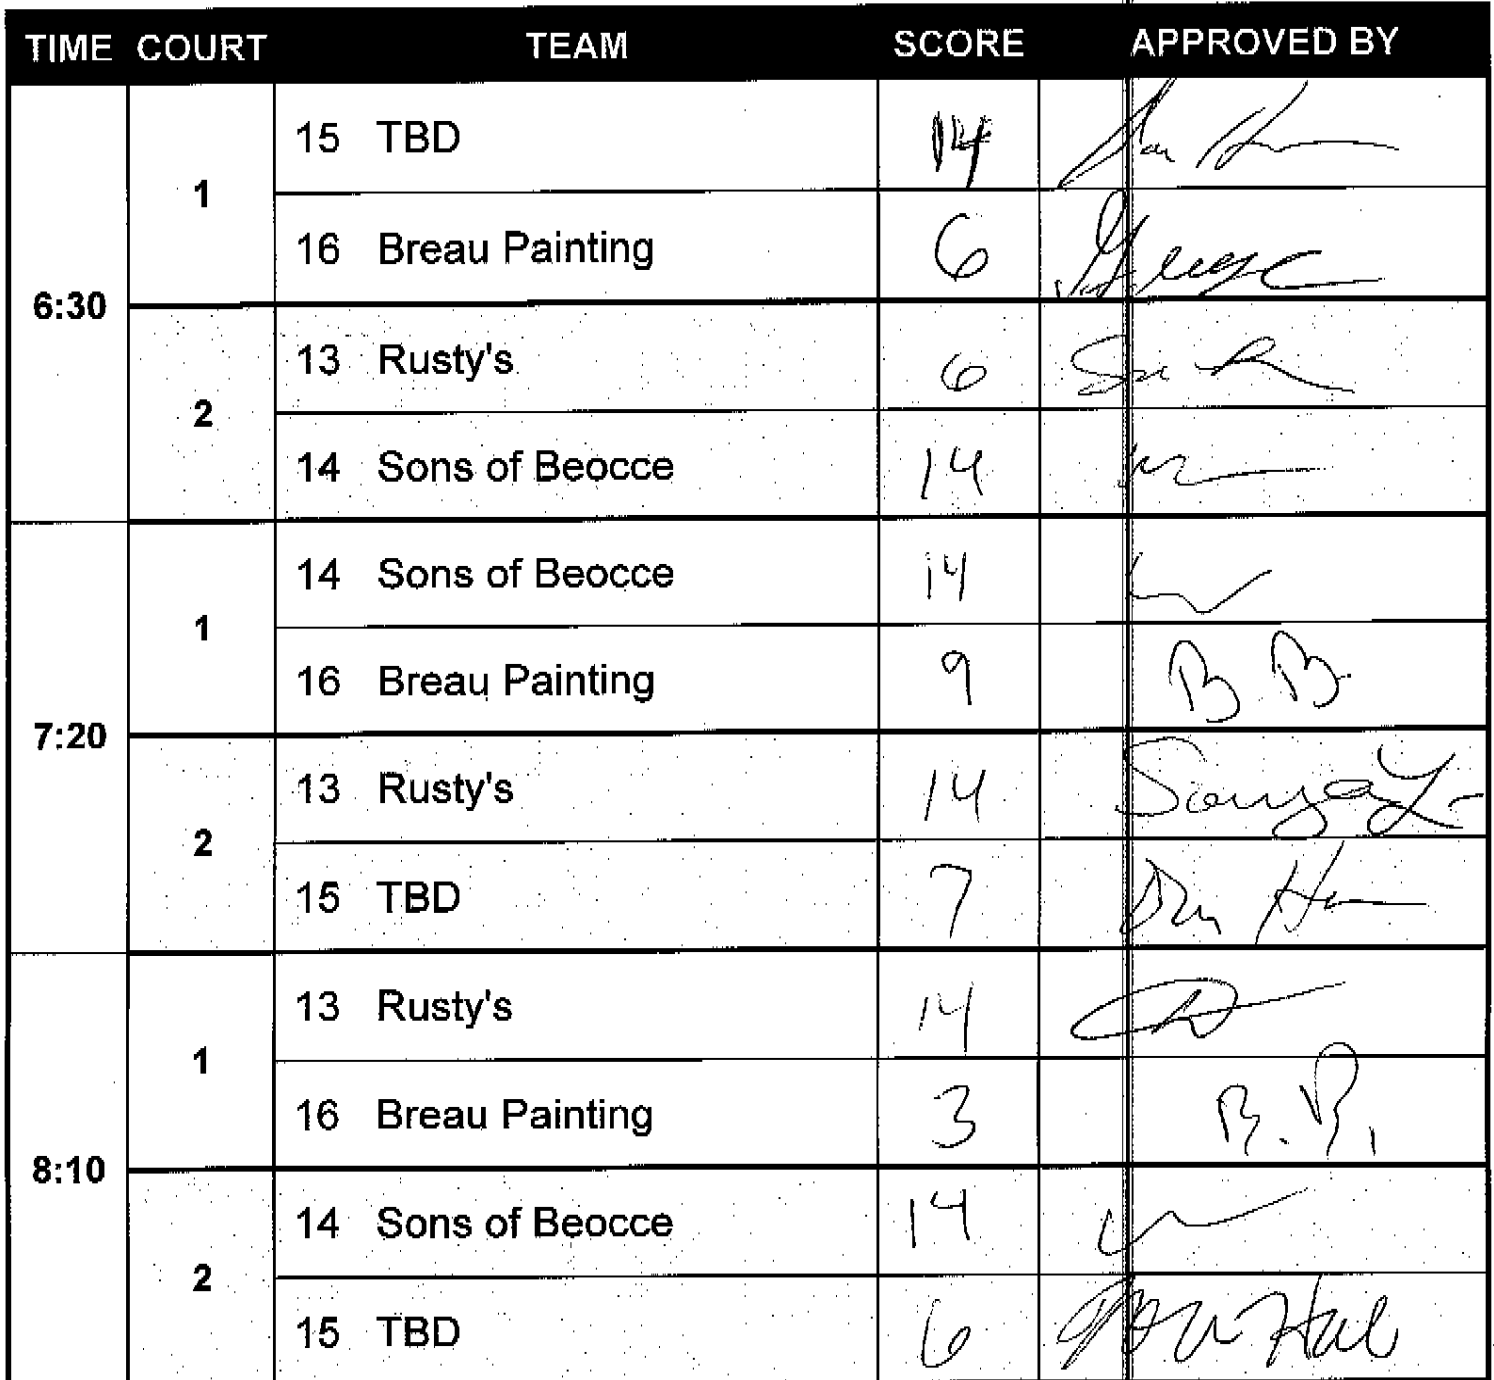 TIME COURT TEAM SCORE APPROVED BY
6:30
1
15 TBD 14
16 Breau Painting 6
2
13 Rusty's 6
14 Sons of Beocce 14
7:20
1
14 Sons of Beocce 14
16 Breau Painting 9 B B.
2
13 Rusty's 14 Sonya L
15 TBD 7
8:10
1
13 Rusty's 14
16 Breau Painting 3 B. B.
2
14 Sons of Beocce 14
15 TBD 6